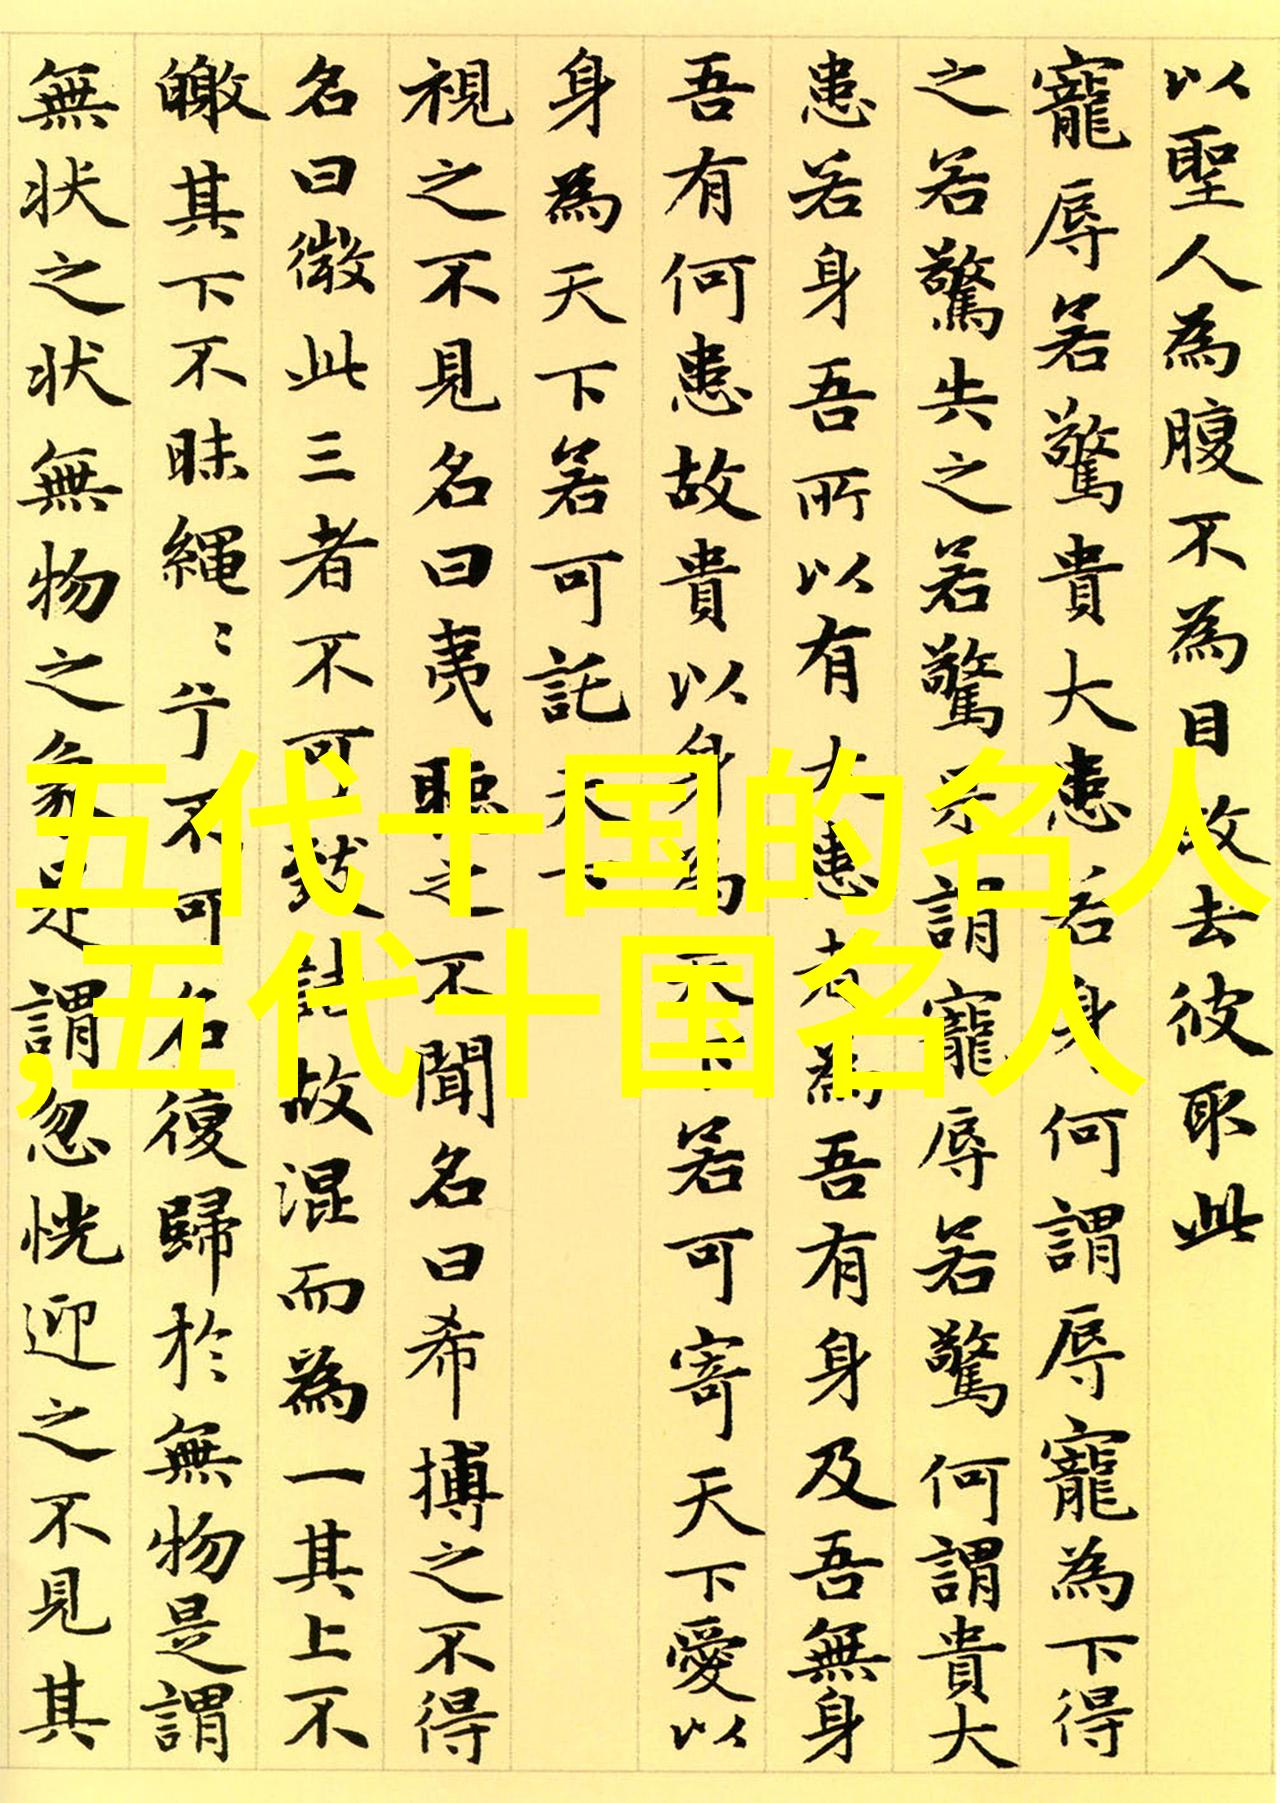 以聖人為腹不為目故去彼取此
寵辱若驚貴大患若身何謂辱寵為下得
之若驚失之若驚是謂寵辱若驚何謂貴大
患若身吾所以有大患者為吾有身及吾無身
吾有何患故貴以身為天下若可寄天下愛以
身為天下若可託天下
視之不見名曰夷聽之不聞名曰希搏之不得
名曰微此三者不可致詰故混而為一其上不
皦其下不昧繩〻兮不可名復歸於無物是謂
無状之状無物之象是謂忽恍迎之不見其
五代十国的名人
,五代十国名人